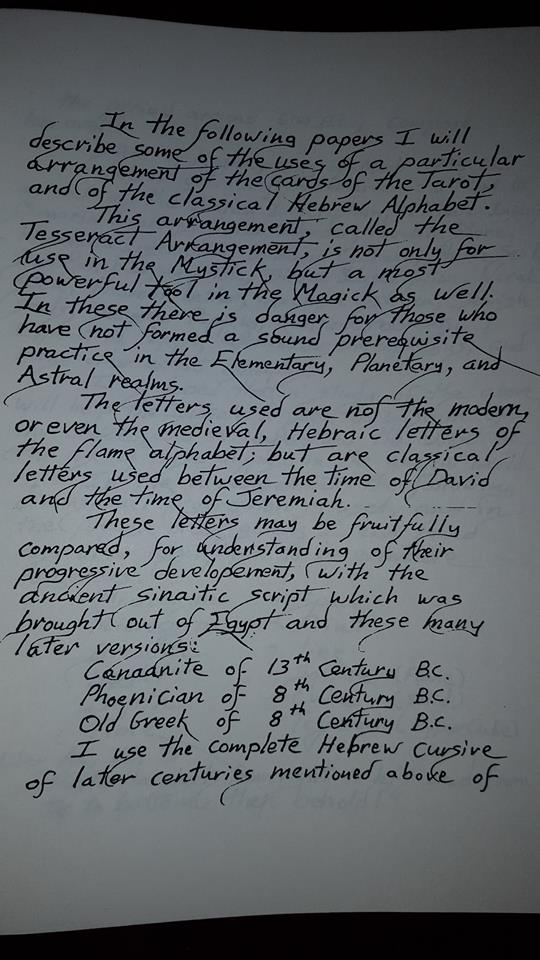 In the following papers I will
describe some of the uses of a particular
arrangement of the cards of the Tarot,
and of the classical Hebrew Alphabet.
This arrangement, called the
Tesseract Arrangement, is not only for
use in the Mystick, but a most
powerful tool in the Magick as well.
In these there is danger for those who
have not formed a sound prerequisite
practice in the Elementary, Planetary, and
Astral realms.
The letters used are not the modern,
or even the medieval, Hebraic letters of
the flame alphabet; but are classical
letters used between the time of David
and the time of Jeremiah.
These letters may be fruitfully
compared, for understanding of their
progressive developement, with the
ancient sinaitic script which was
brought out of Egypt and these many
later versions:
Canaanite of 13th Century B.C.
Phoenician of 8th Century B.C.
Old Greek of 8th Century B.C.
I use the complete Hebrew Cursive
of later centuries mentioned above of